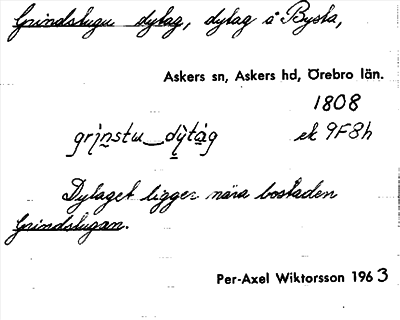 Grindstugu dytag, dytag å Bysta,
Askers sn, Askers hd, Örebro län.
1808
grı̀nstu_dỳtàg ek 9F8h
Dytaget ligger nära bostaden
Grindstugan.
Per-Axel Wiktorsson 1963